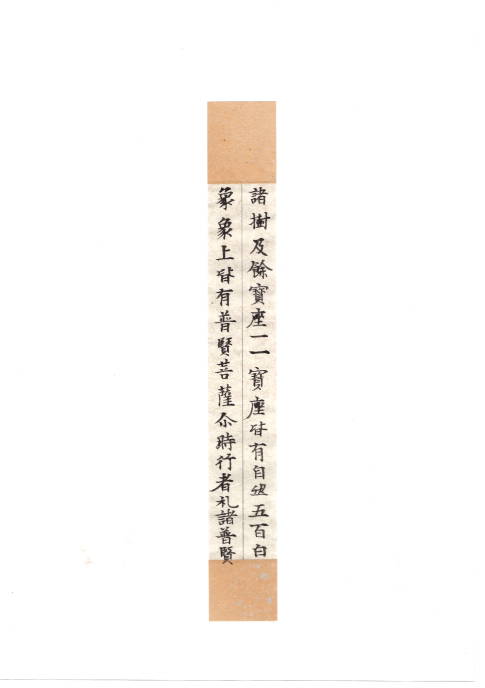 諸樹及餘寶座一一寶座皆有自然五百白
象象上皆有普賢菩薩尒時行者礼諸普賢